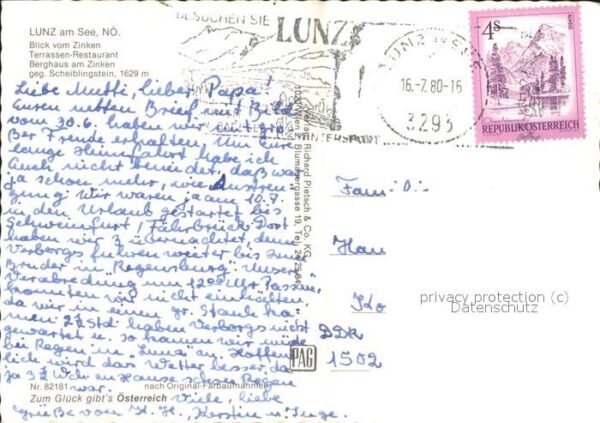 LUNZ am See, NÖ.
Blick vom Zinken
Terrassen-Restaurant
Berghaus am Zinken
geg. Scheiblingstein, 1629 m
BESUCHEN SIE
LUNZ
WINTERSPORT
LUNZ
16.-7.80-16
3293
4S
REPUBLIK ÖSTERREICH
Liebe Mutti, lieber Papa!
Euren netten Brief mit Bild
vom 30.6. haben wir mit gro-
ßer Freude erhalten. Um Eure
lange Heimfahrt habe ich
Euch nicht beneidet, daß war
ja schon mehr, wie Anstren-
gung. Wir waren ja am 10.7.
in den Urlaub gestartet bis
Schweinfurt / Fährbrück. Dort
haben wir 3 x übernachtet, dann
Verborgs fuhren weiter bis zum
Bruder in Regensburg. Unsere
Verabredung um 12.00 Uhr Passau,
konnten wir nicht einhalten,
da wir in einen gr. Staub ka-
men 2 ½ Std. haben Verborgs nicht
gewartet u. so kamen wir müde
bei Regen in "Lunz" an. Hoffent-
lich wird das Wetter besser, da
ja 3 ½ Wch. zu Hause schon Regen
war. Viele, liebe
Grüße von K. H., Kerstin u. Inge.
Verlag Richard Pietsch & Co. KG.
1000 Wien 21, Blumentgasse 19, Tel.
PAG
Fam.
DDR
1502
privacy protection (c)
Datenschutz
Nr. 82181 nach Original-Farbaufnahmen
Zum Glück gibt's Österreich